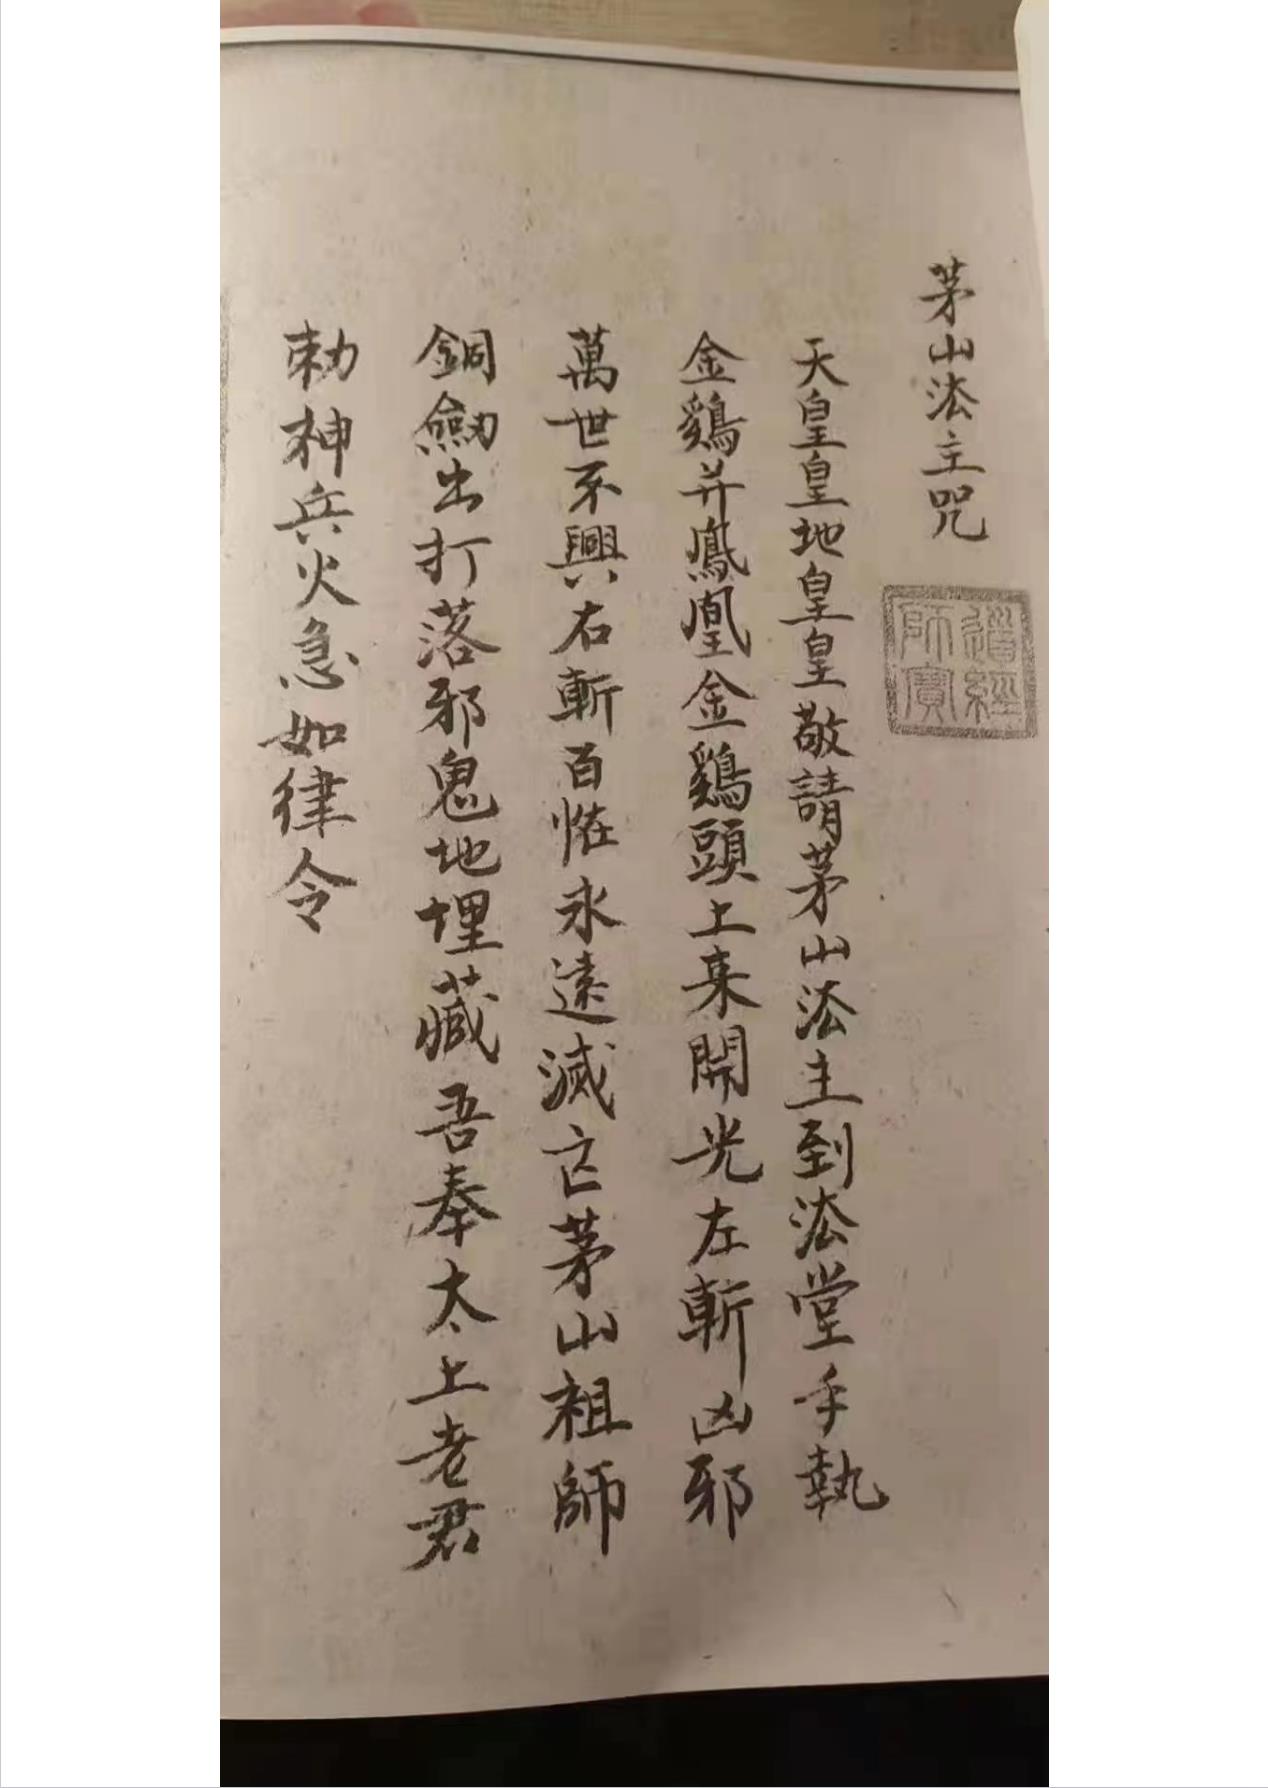 茅山法主咒
道經師寶
天皇皇地皇皇敬請茅山法主到法堂手執
金鷄并鳳凰金鷄頭上来開光左斬凶邪
萬世不興右斬百恠永遠滅亡茅山祖師
銅劔出打落邪鬼地埋藏吾奉太上老君
勅神兵火急如律令